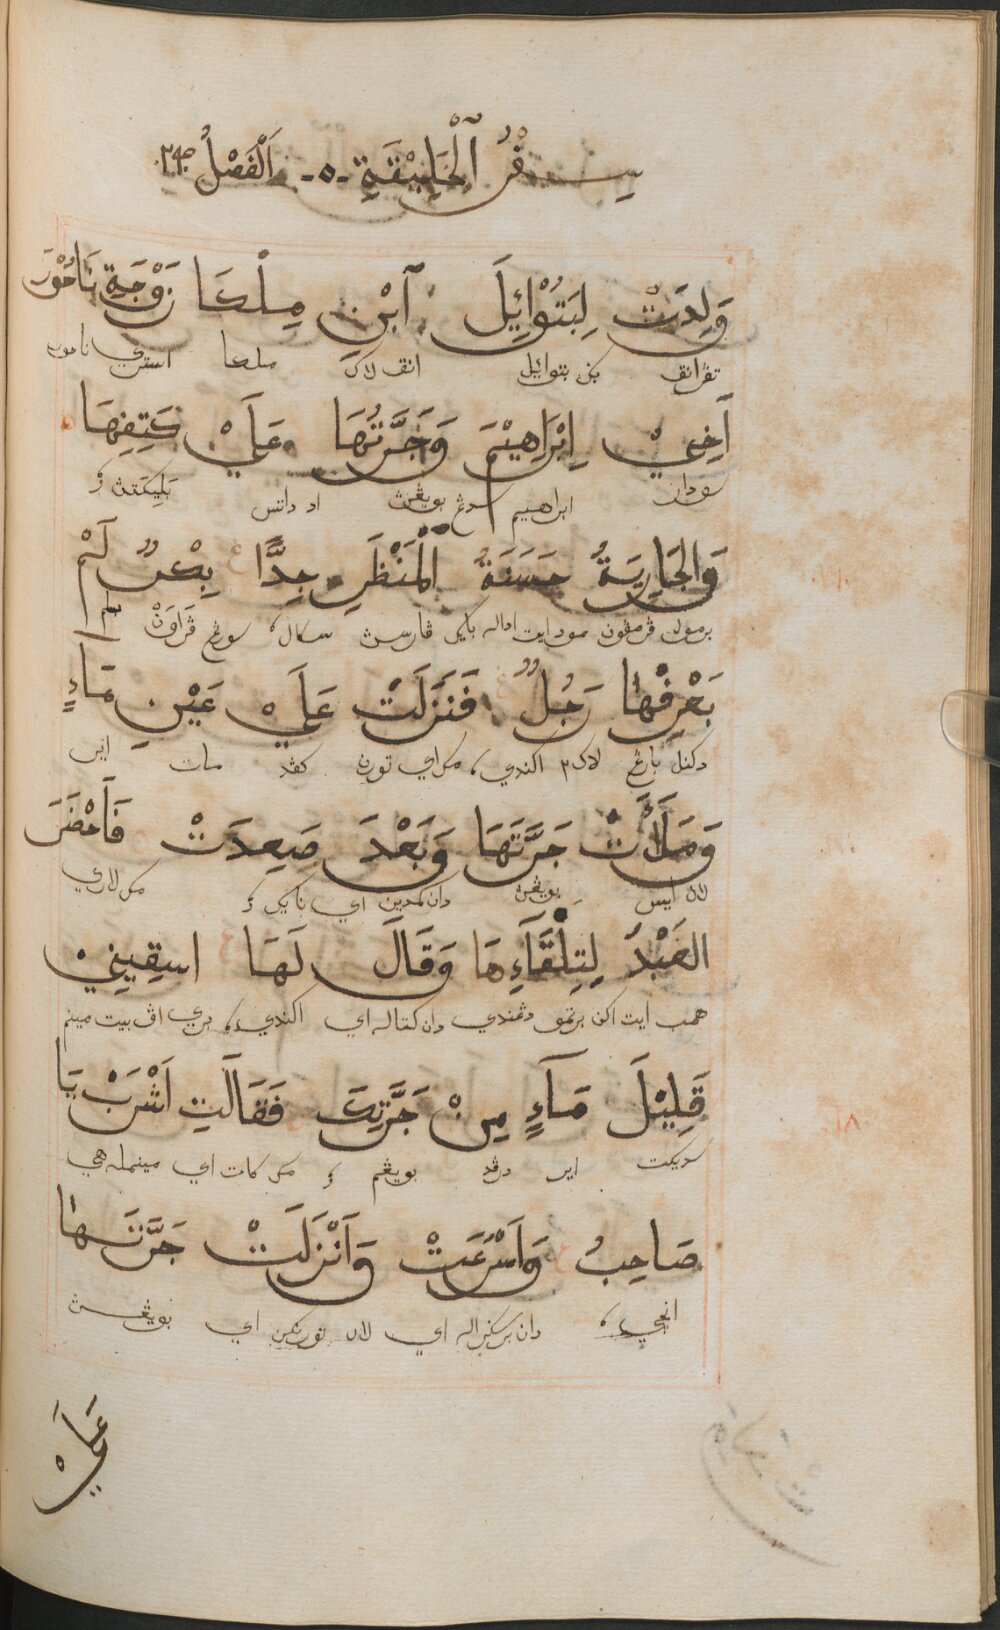 سِفْرُ ٱلْخَلِيْقَةِ -٥- اَلْفَصْلُ ٢٤
وَلِدَتْ لِبَتُوْائِلَ ٱبْنِ مِلْكَا زَوْجَةِ نَاحُوْرَ
بتوائل انق لاک ملكا استري ناحور
اَخِيْ اِبْرَاهِيْمَ وَجَرَّتُهَا عَلَيْ كَتِفِهَا
سودار ابراهيم بويڠڽ اد داتس
وَالْجَارِيَةُ حَسَنَةُ الْمَنْظَرِ جِدًّا بِكْرٌ لَمْ
ڤرمڤون مودايت اداله بايک ڤارسڽ سكالي
يَعْرِفْهَا رَجُلٌ فَنَزَلَتْ عَلَيْ عَيْنِ مَاءٍ
دكنل لاک٢ اكندي مک اي تورن كڤد مات اير
وَمَلَأَتْ جَرَّتَهَا وَبَعْدَ صَعِدَتْ فَاَحْضَرَ
لالو ايس بويڠڽ دان كمدين اي نايک مک لاري
العَبْدُ لِتِلْقَآءِهَا وَقَالَ لَهَا اسقِينِيْ
همب ايت اكن برتمو دڠندي دان كتاله اي اكندي بري اڤ بيت مينم
قَلِيْلَ مَآءٍ مِنْ جَرَّتِكِ فَقَالَتِ اشْرَبْ يَا
سديكت اير درڤد بويڠم مک كات اي مينمله هي
صَاحِبُ وَاَسْرَعَتْ وَاَنْزَلَتْ جَرَّتَهَا
انچي دان برسڬراله اي لالو تورنكن اي بويڠڽ
عَلَيْ